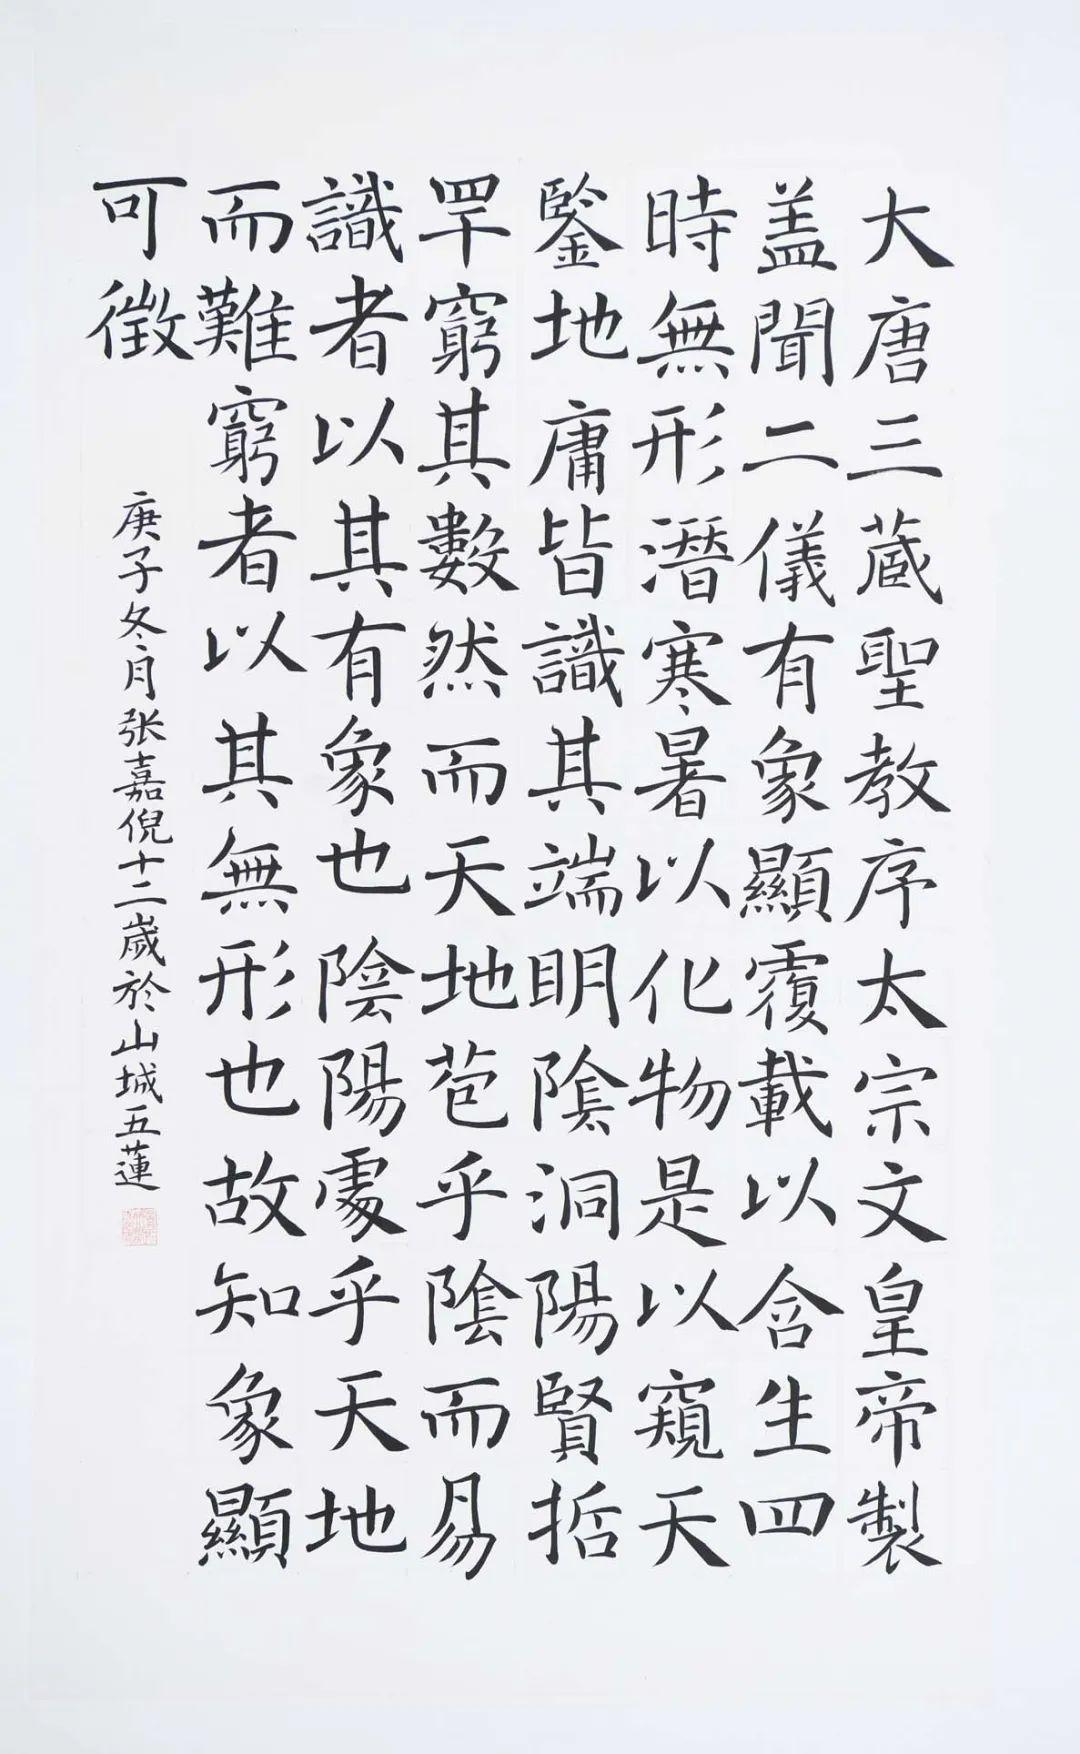 大唐三蔵聖教序太宗文皇帝製
盖聞二儀有象顯覆載以含生四
時無形潛寒暑以化物是以窺天
鑒地庸皆識其端明陰洞陽賢哲
罕窮其數然而天地苞乎陰而易
識者以其有象也陰陽處乎天地
而難窮者以其無形也故知象顯
可徵
庚子冬月张嘉倪十二歲於山城五蓮